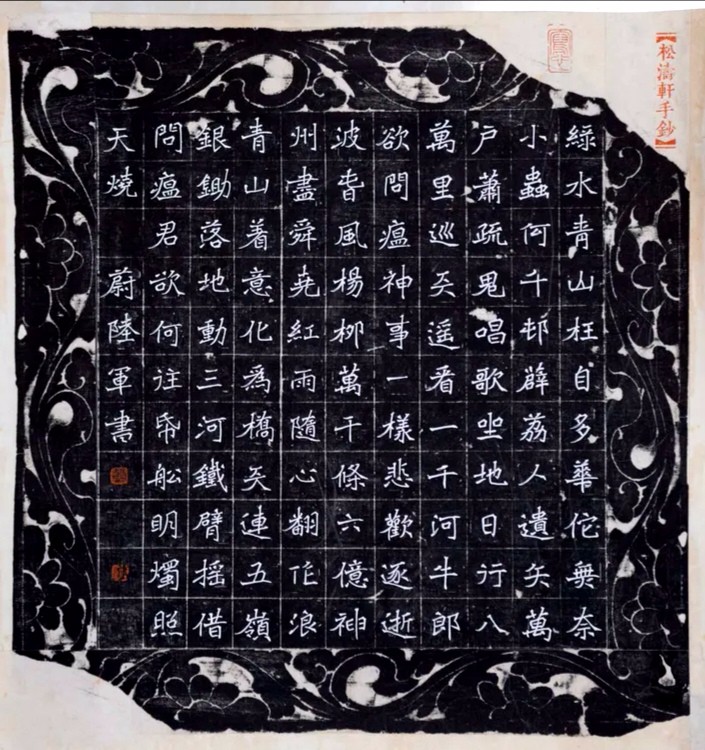 【松濤軒手鈔】
綠水青山枉自多華佗無奈
小蟲何千邨薜荔人遺矢萬
户蕭疏鬼唱歌坐地日行八
萬里巡天遥看一千河牛郎
欲問瘟神事一樣悲歡逐逝
波春風楊柳萬千條六億神
州盡舜堯紅雨隨心翻作浪
青山着意化爲橋天連五嶺
銀鋤落地動三河鐵臂摇借
問瘟君欲何往帋船明燭照
天燒 蔚陸軍書